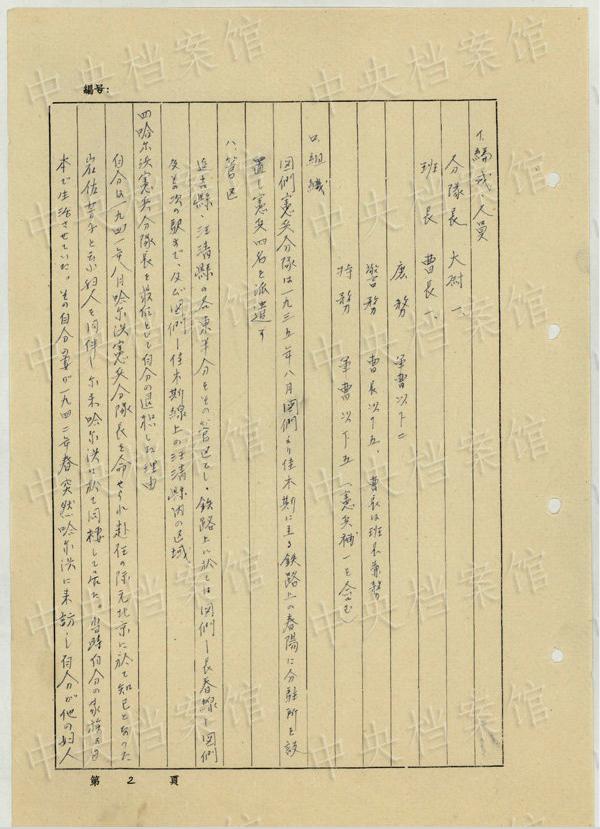 編号:
イ.編成、人員
分隊長 大尉一、
班長 曹長一、
庶務 軍曹以下二
警務 曹長以下五、曹長は班長兼務
特務 軍曹以下五(憲兵補一を含む)
ロ.組織
図們憲兵分隊は一九三五年八月図們より佳木斯に至る鉄路上の春陽に分駐所を設
置し憲兵四名を派遣す
ハ、管区
延吉縣、汪清縣の各東半分をその管区とし、鉄路上に於ては図們—長春線の図們
の駅まで、及び図們—佳木斯線上の汪清縣内の区域
四哈尔浜憲兵分隊長を最后として自分の退担した理由
自分は一九四一年八月哈尔浜憲兵分隊長を命ぜられ赴任の際元北京に於て知己となった
岩佐芳子と云ふ婦人を同伴し尓来哈尔浜に於て同棲して居た。当時自分の家族は日
本で生活させていた。その自分の妻が一九四二年春突然哈尔浜に来訪し自分が他の婦人
第 2 頁
中央档案馆